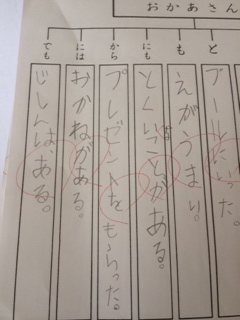 おかあさん
と
プールにいった。
も
えがうまい。
にも
とくいなことがある。
から
プレゼントをもらった。
には
おかねがある。
でも
じしんは、ある。